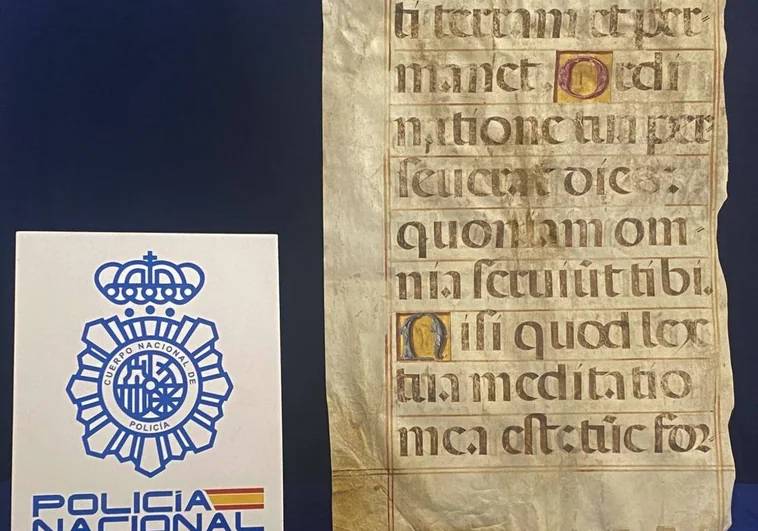 ti terram et per-
manet. Ordi
natione tua per-
seuerat dies:
quoniam om-
nia seruiūt tibi.
Nisi quod lex
tua meditatio
mea est: tūc for-
CUERPO NACIONAL DE
POLICÍA
POLICÍA
NACIONAL